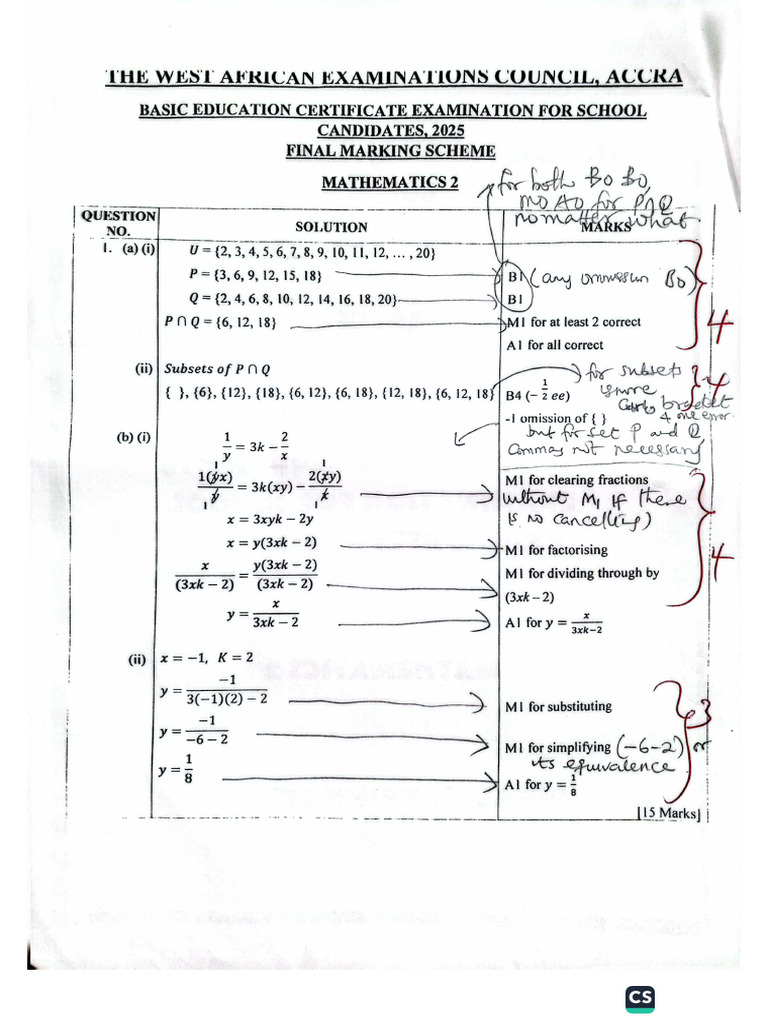 THE WEST AFRICAN EXAMINATIONS COUNCIL, ACCRA
BASIC EDUCATION CERTIFICATE EXAMINATION FOR SCHOOL
CANDIDATES, 2025
FINAL MARKING SCHEME
MATHEMATICS 2
for both B0 B0,
M0 A0 for P∩Q
no matter what
QUESTION NO.
SOLUTION
MARKS
1. (a) (i) U = {2, 3, 4, 5, 6, 7, 8, 9, 10, 11, 12, … , 20}
P = {3, 6, 9, 12, 15, 18} B1 (any ommession B0)
Q = {2, 4, 6, 8, 10, 12, 14, 16, 18, 20} B1
P ∩ Q = {6, 12, 18} M1 for at least 2 correct
A1 for all correct
4
(ii) Subsets of P ∩ Q
for subsets
ignore
{ }, {6}, {12}, {18}, {6, 12}, {6, 18}, {12, 18}, {6, 12, 18} B4 (− 1/2 ee)
bracket
4 one error
4
-1 omission of { }
but for set P and Q
commas not necessary
(b) (i) 1/y = 3k − 2/x
1(yx)/y = 3k(xy) − 2(xy)/x M1 for clearing fractions
(without M1 if there
is no cancelling)
x = 3xyk − 2y
x = y(3xk − 2) M1 for factorising
x/(3xk − 2) = y(3xk − 2)/(3xk − 2) M1 for dividing through by
(3xk – 2)
y = x/3xk − 2 A1 for y = x/3xk−2
4
(ii) x = −1, K = 2
y = −1/3(−1)(2) − 2 M1 for substituting
y = −1/−6 − 2 M1 for simplifying (−6−2) or
its equivalence
y = 1/8 A1 for y = 1/8
3
[15 Marks]
CS